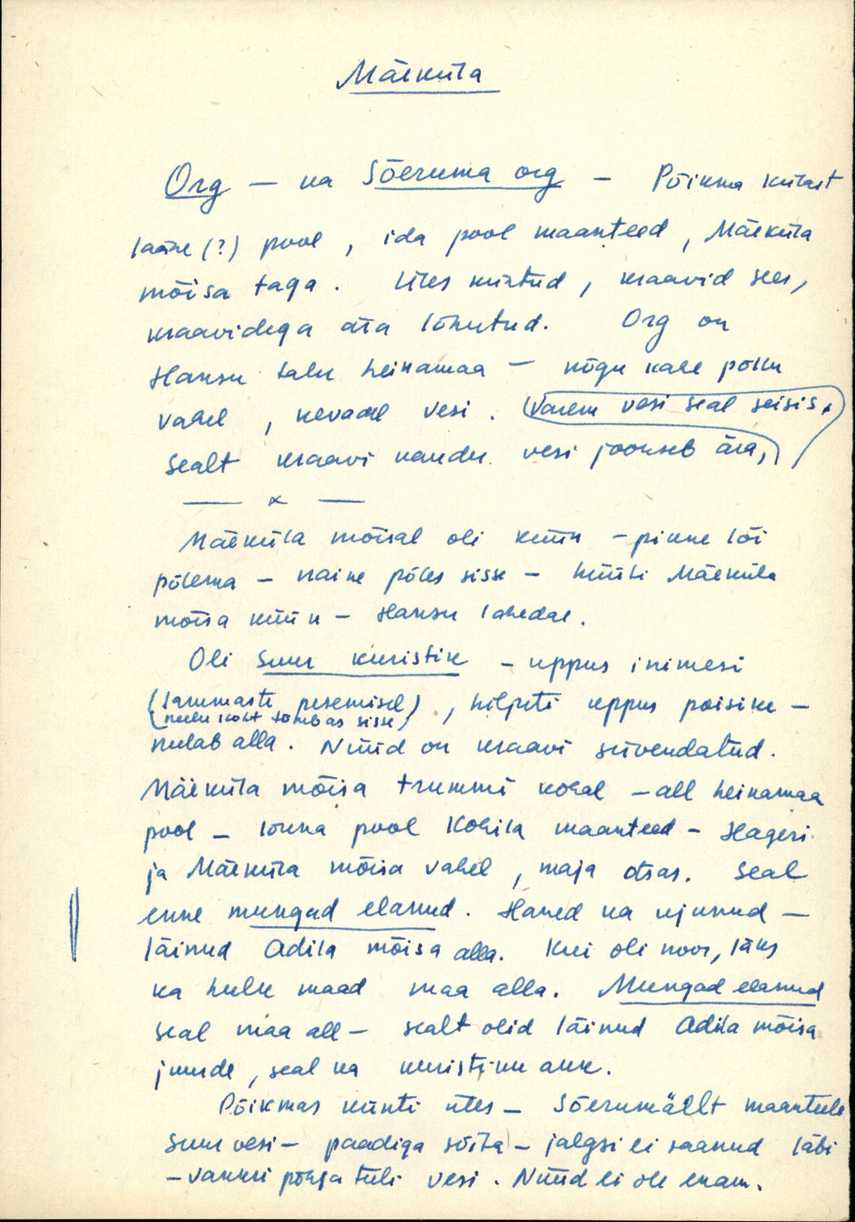 Mäeküla
Org — ka Sõeruma org — Põikma külast
lääne (?) pool, ida pool maanteed, Mäeküla
mõisa taga. Üles küntud, kraavid sees,
kraavidega ära lõhutud. Org on
Hansu talu heinamaa — nõgu kahe põllu
vahel, kevadel vesi. (Varem vesi seal seisis,
sealt kraavi kaudu vesi jookseb ära,)
— x —
Mäeküla mõisal oli küün – pikne lõi
põlema – naine põles sisse – hüüti Mäeküla
mõisa küün – Hansu lahedal.
Oli suur kuristik – uppus inimesi
(lammaste pesemisel), hiljuti uppus poisike –
(neelu koht tõmbas sisse)
neelab alla. Nüüd on kraavi süvendatud.
Mäeküla mõisa trummi kohal – all heinamaa
pool – lõuna pool Kohila maanteed – Hageri
ja Mäeküla mõisa vahel, maja otsas. Seal
enne mungad elanud. Haned ka ujunud –
läinud Adila mõisa alla. Kui oli noor, läks
ka hulk maad maa alla. Mungad elanud
seal maa all – sealt olid läinud Adila mõisa
juurde, seal ka kuristiku auk.
Põikmas künti üles – Sõerumäelt maanteele
suur vesi – paadiga sõita – jalgsi ei saanud läbi
– vankri põhja tuli vesi. Nüüd ei ole enam.